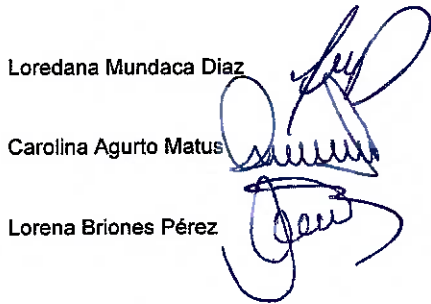 Loredana Mundaca Diaz
Carolina Agurto Matus
Lorena Briones Pérez